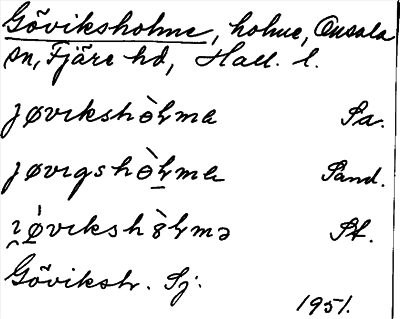 Göviksholme, holme, Onsala
sn, Fjäre hd, Hall. l.
jøvıkshòɬma Sa.
jøvıgshòɬma Sand.
ı̯ø̀vıkshòɬmə St.
Gövikstr. Sj.
1951.